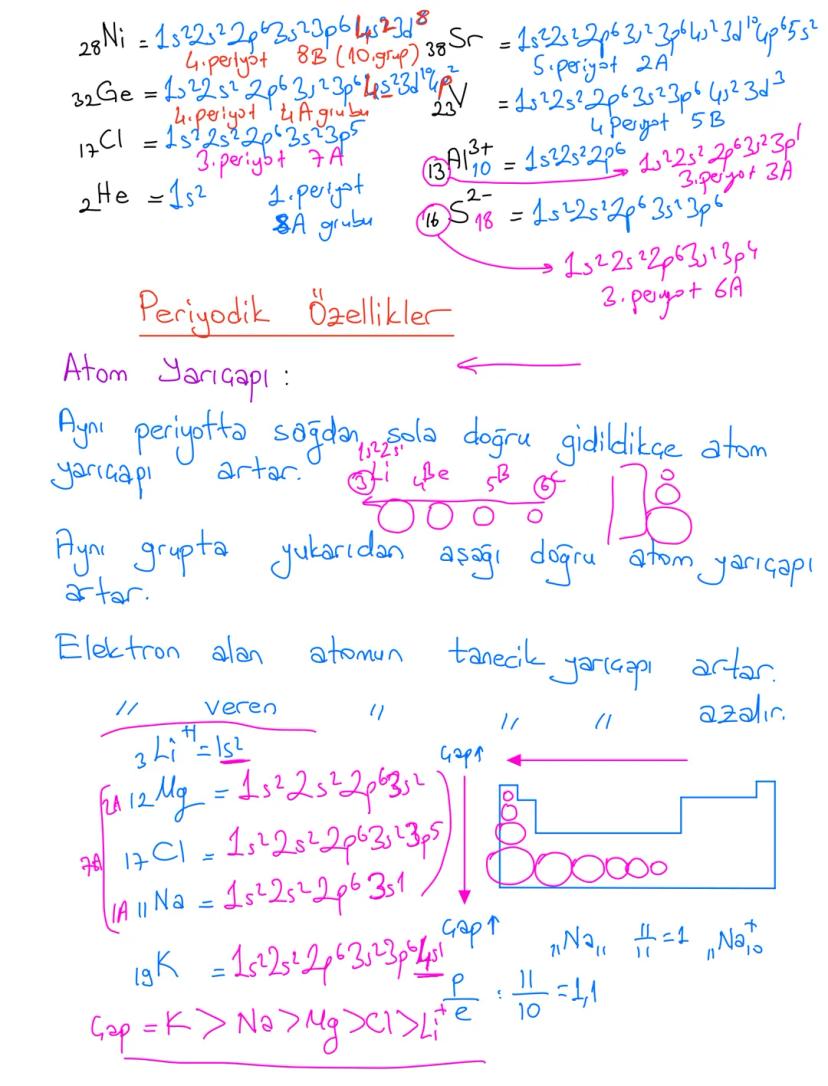 ₂₈Ni = 1s²2s²2p⁶3s²3p⁶4s²3d⁸
4.periyot 8B (10.grup)
₃₂Ge = 1s²2s²2p⁶3s²3p⁶4s²3d¹⁰4p²
4.periyot 4A grubu
₁₇Cl = 1s²2s²2p⁶3s²3p⁵
3.periyot 7A
₂He = 1s² 1.periyot
8A grubu
₃₈Sr = 1s²2s²2p⁶3s²3p⁶4s²3d¹⁰4p⁶5s²
5.periyot 2A
₂₃V = 1s²2s²2p⁶3s²3p⁶4s²3d³
4.periyot 5B
₁₃Al³⁺₁₀ = 1s²2s²2p⁶ 1s²2s²2p⁶3s²3p¹
3.periyot 3A
₁₆S²⁻₁₈ = 1s²2s²2p⁶3s²3p⁶
1s²2s²2p⁶3s²3p⁴
3.periyot 6A
Periyodik Özellikler
Atom Yarıçapı :
Aynı periyotta sağdan sola doğru gidildikçe atom
yarıçapı artar.
1s²2s¹
₃Li ₄Be ₅B ₆C
Aynı grupta yukarıdan aşağı doğru atom yarıçapı
artar.
Elektron alan atomun tanecik yarıçapı artar.
" veren " " " azalır.
₃Li⁺¹ = 1s²
2A ₁₂Mg = 1s²2s²2p⁶3s²
7A ₁₇Cl = 1s²2s²2p⁶3s²3p⁵
1A ₁₁Na = 1s²2s²2p⁶3s1
₁₉K = 1s²2s²2p⁶3s²3p⁶4s¹
Çap = K > Na > Mg > Cl > Li⁺
Çap↑
Çap↑
₁₁Na₁₁ 11/11 = 1 ₁₁Na⁺₁₀
p/e : 11/10 = 1,1